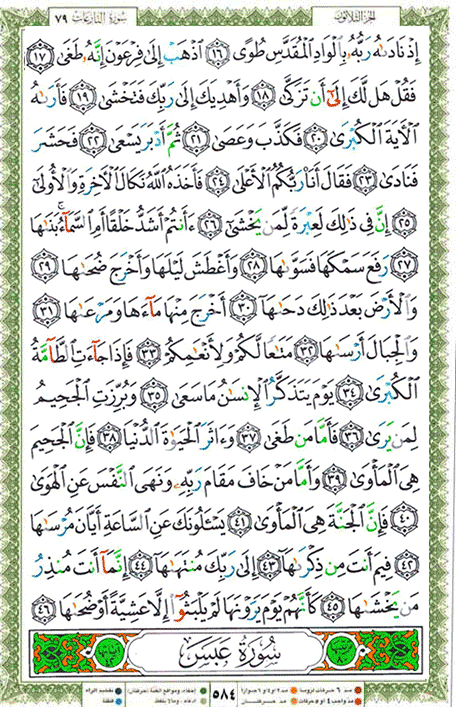 سورة النازعات ٧٩
الجزء الثلاثون
إِذْ نَادَىٰهُ رَبُّهُۥ بِٱلْوَادِ ٱلْمُقَدَّسِ طُوًى ١٦ ٱذْهَبْ إِلَىٰ فِرْعَوْنَ إِنَّهُۥ طَغَىٰ ١٧
فَقُلْ هَل لَّكَ إِلَىٰٓ أَن تَزَكَّىٰ ١٨ وَأَهْدِيَكَ إِلَىٰ رَبِّكَ فَتَخْشَىٰ ١٩ فَأَرَىٰهُ
ٱلْءَايَةَ ٱلْكُبْرَىٰ ٢٠ فَكَذَّبَ وَعَصَىٰ ٢١ ثُمَّ أَدْبَرَ يَسْعَىٰ ٢٢ فَحَشَرَ
فَنَادَىٰ ٢٣ فَقَالَ أَنَا۠ رَبُّكُمُ ٱلْأَعْلَىٰ ٢٤ فَأَخَذَهُ ٱللَّهُ نَكَالَ ٱلْءَاخِرَةِ وَٱلْأُولَىٰٓ
٢٥ إِنَّ فِى ذَٰلِكَ لَعِبْرَةً لِّمَن يَخْشَىٰٓ ٢٦ ءَأَنتُمْ أَشَدُّ خَلْقًا أَمِ ٱلسَّمَآءُ ۚ بَنَىٰهَا
٢٧ رَفَعَ سَمْكَهَا فَسَوَّىٰهَا ٢٨ وَأَغْطَشَ لَيْلَهَا وَأَخْرَجَ ضُحَىٰهَا ٢٩
وَٱلْأَرْضَ بَعْدَ ذَٰلِكَ دَحَىٰهَآ ٣٠ أَخْرَجَ مِنْهَا مَآءَهَا وَمَرْعَىٰهَا ٣١
وَٱلْجِبَالَ أَرْسَىٰهَا ٣٢ مَتَٰعًا لَّكُمْ وَلِأَنْعَٰمِكُمْ ٣٣ فَإِذَا جَآءَتِ ٱلطَّآمَّةُ
ٱلْكُبْرَىٰ ٣٤ يَوْمَ يَتَذَكَّرُ ٱلْإِنسَٰنُ مَا سَعَىٰ ٣٥ وَبُرِّزَتِ ٱلْجَحِيمُ
لِمَن يَرَىٰ ٣٦ فَأَمَّا مَن طَغَىٰ ٣٧ وَءَاثَرَ ٱلْحَيَوٰةَ ٱلدُّنْيَا ٣٨ فَإِنَّ ٱلْجَحِيمَ
هِىَ ٱلْمَأْوَىٰ ٣٩ وَأَمَّا مَنْ خَافَ مَقَامَ رَبِّهِۦ وَنَهَى ٱلنَّفْسَ عَنِ ٱلْهَوَىٰ
٤٠ فَإِنَّ ٱلْجَنَّةَ هِىَ ٱلْمَأْوَىٰ ٤١ يَسْـَٔلُونَكَ عَنِ ٱلسَّاعَةِ أَيَّانَ مُرْسَىٰهَا
٤٢ فِيمَ أَنتَ مِن ذِكْرَىٰهَآ ٤٣ إِلَىٰ رَبِّكَ مُنتَهَىٰهَآ ٤٤ إِنَّمَآ أَنتَ مُنذِرُ
مَن يَخْشَىٰهَا ٤٥ كَأَنَّهُمْ يَوْمَ يَرَوْنَهَا لَمْ يَلْبَثُوٓا۟ إِلَّا عَشِيَّةً أَوْ ضُحَىٰهَا ٤٦
سُورَةُ عَبَسَ
٥٨٤